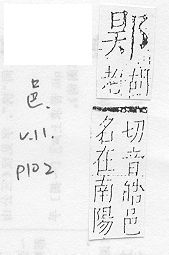 胡
老
切音皓邑
名在南陽
邑.
v.11.
p102